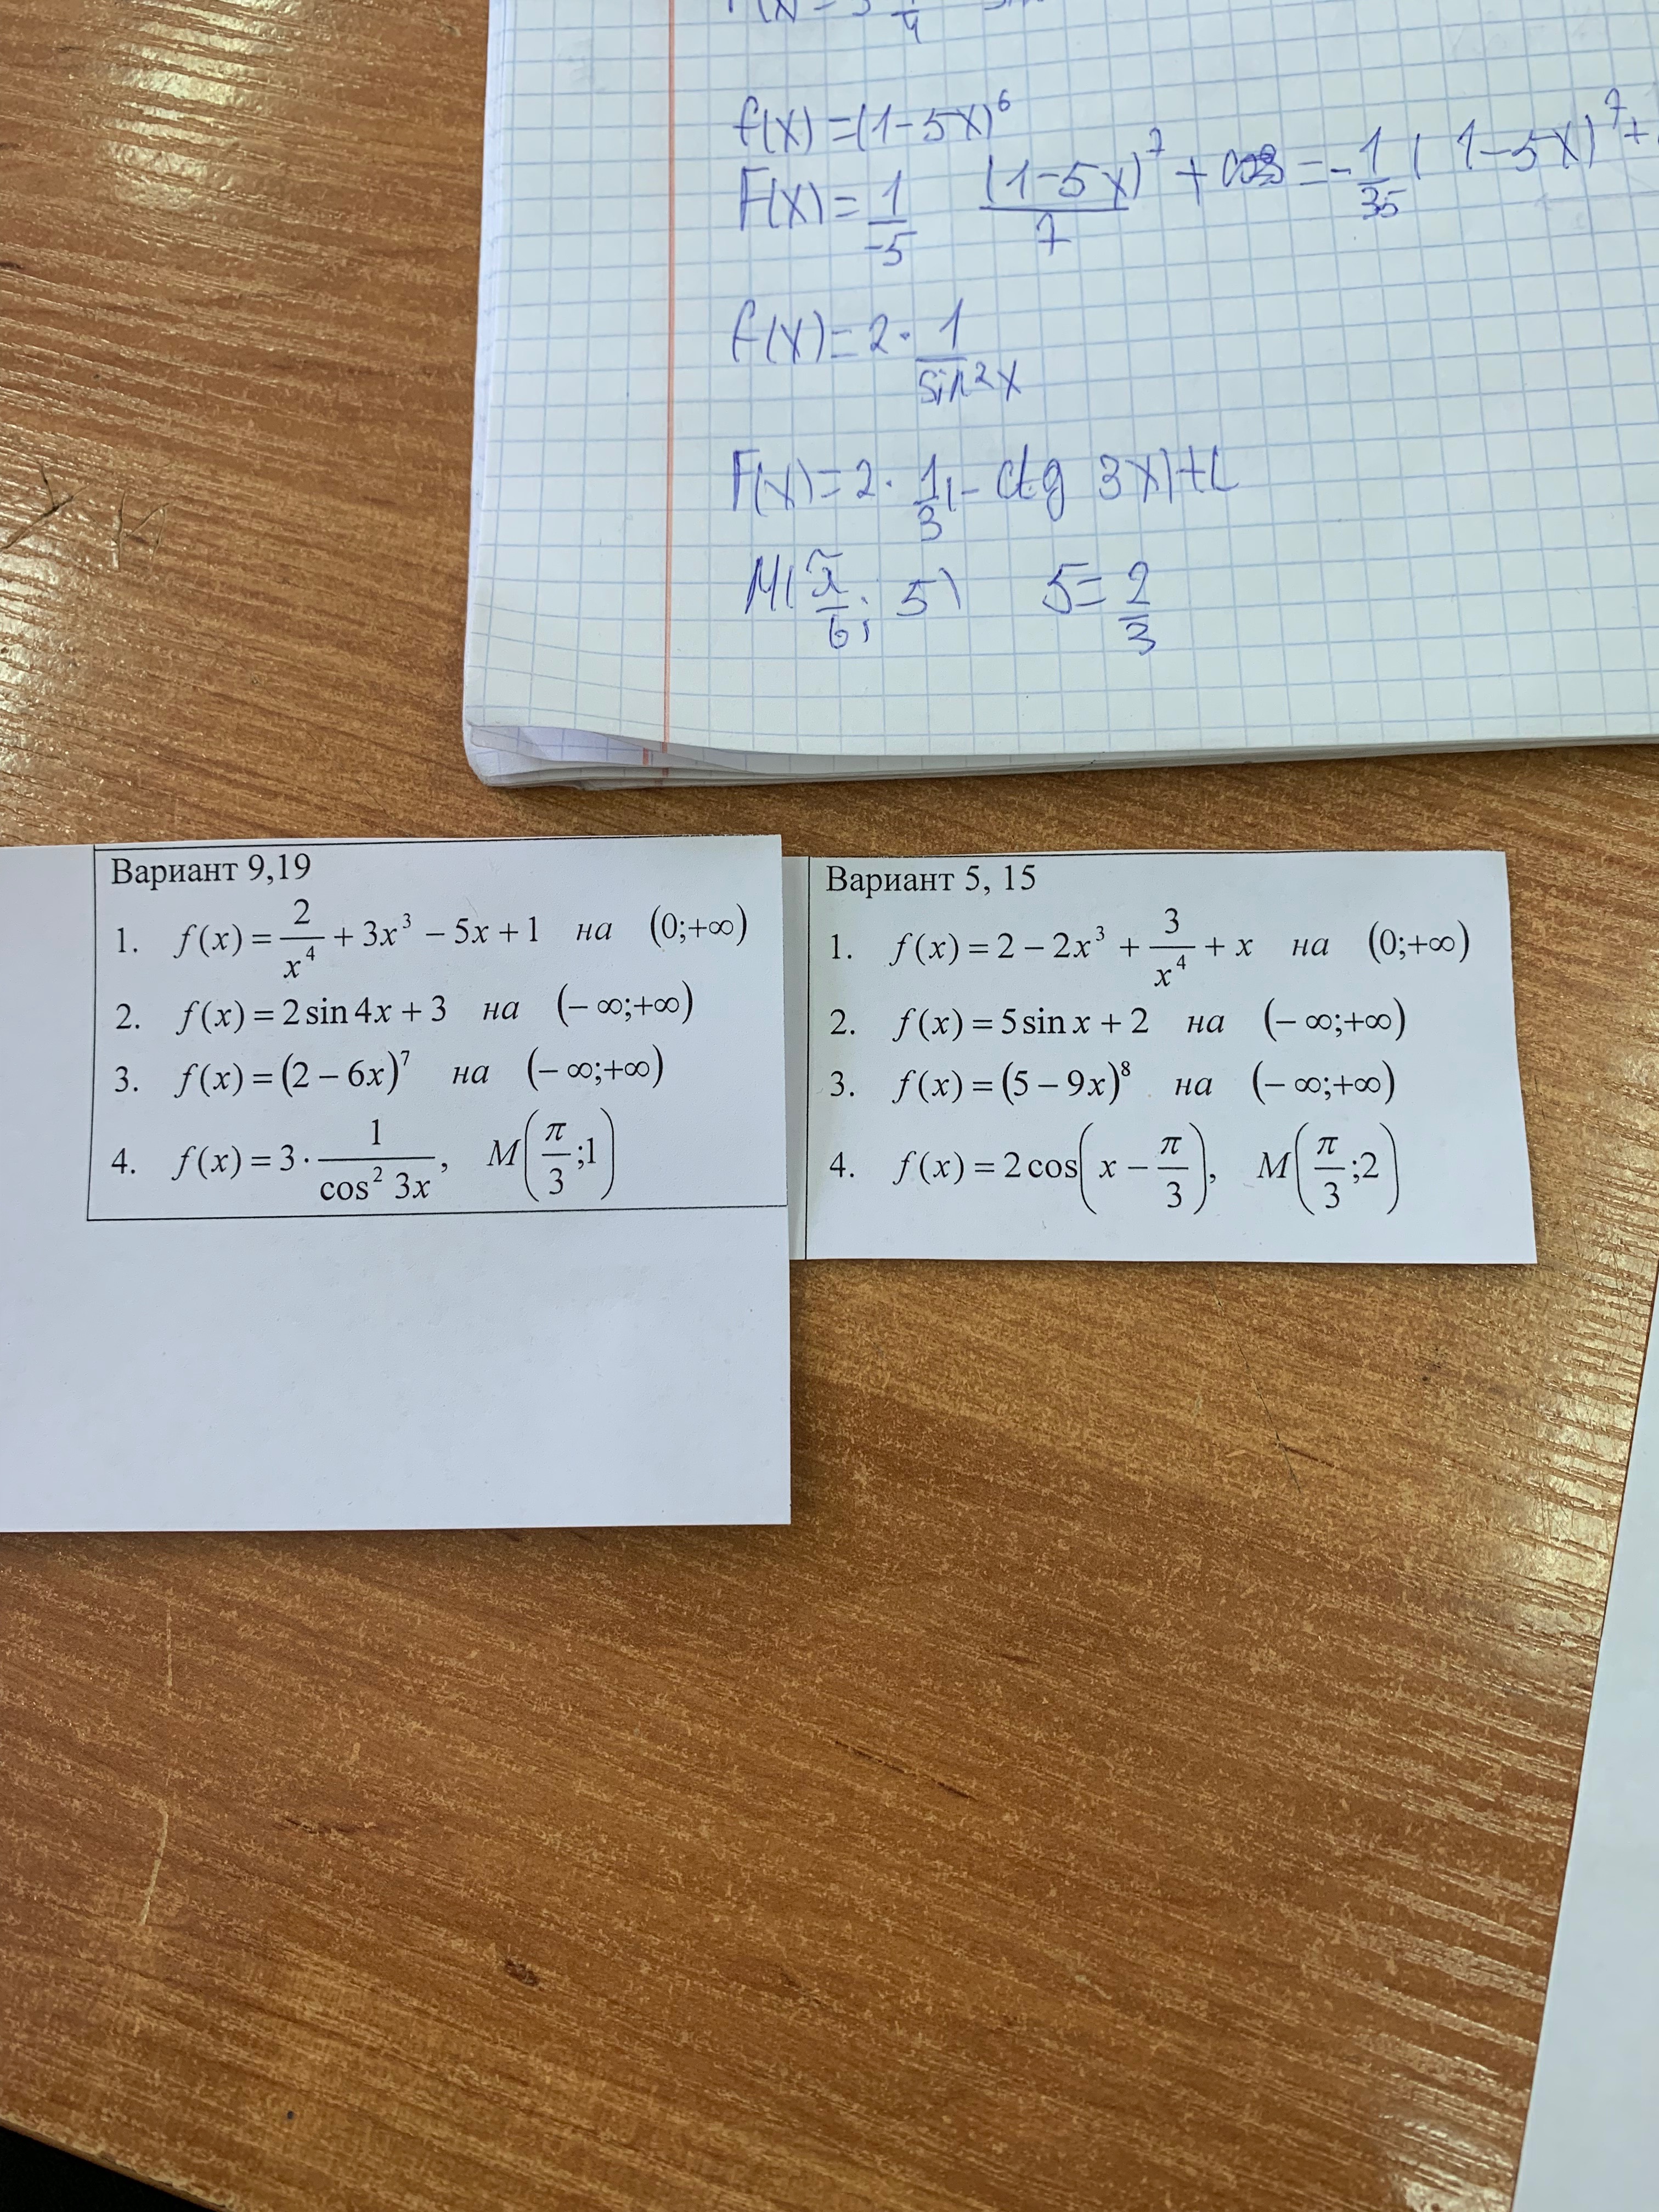 f(x) = (1-5x)^6
F(x) = 1/-5 (1-5x)^7/7 + = -1/35 (1-5x)^7 +
f(x) = 2 · 1/sin²x
F(x) = 2 · 1/3 (- ctg 3x) + C
M(π/6; 5) 5 = 2/3
Вариант 9,19
1. f(x) = 2/x⁴ + 3x³ - 5x + 1 на (0;+∞)
2. f(x) = 2 sin 4x + 3 на (- ∞;+∞)
3. f(x) = (2 - 6x)⁷ на (- ∞;+∞)
4. f(x) = 3 · 1/cos² 3x, M(π/3;1)
Вариант 5, 15
1. f(x) = 2 - 2x³ + 3/x⁴ + x на (0;+∞)
2. f(x) = 5 sin x + 2 на (- ∞;+∞)
3. f(x) = (5 - 9x)⁸ на (- ∞;+∞)
4. f(x) = 2 cos(x - π/3), M(π/3;2)